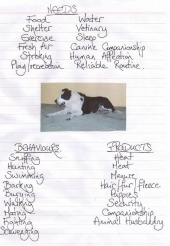 NEEDS
Food Water
Shelter Vetinary
Exercise Sleep
Fresh Air Canine Companionship
Stroking Human Affection
Play/recreation Reliable Routine
BEHAVIOURS
Sniffing
Hunting
Swimming
Barking
Burying
Walking
Mating
Fighting
Scavenging
PRODUCTS
Heat
Meat
Manure
Hair/fur/fleece
Puppies
Security
Companionship
Animal Husbandry